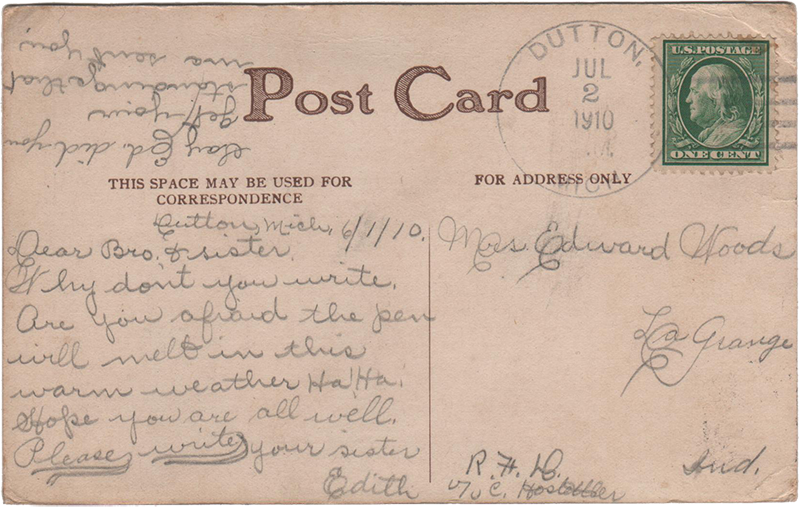 Say Ed. did you
get your
standings that
ma sent you
Post Card
THIS SPACE MAY BE USED FOR
CORRESPONDENCE
FOR ADDRESS ONLY
DUTTON,
JUL
2
1910
U.S. POSTAGE
ONE CENT
Dutton, Mich, 6/1/10.
Dear Bro. & sister.
Why don't you write.
Are you afraid the pen
will melt in this
warm weather Ha! Ha.
Hope you are all well.
Please write your sister
Edith
Mrs. Edward Woods
La Grange
Ind.
R. F. D.